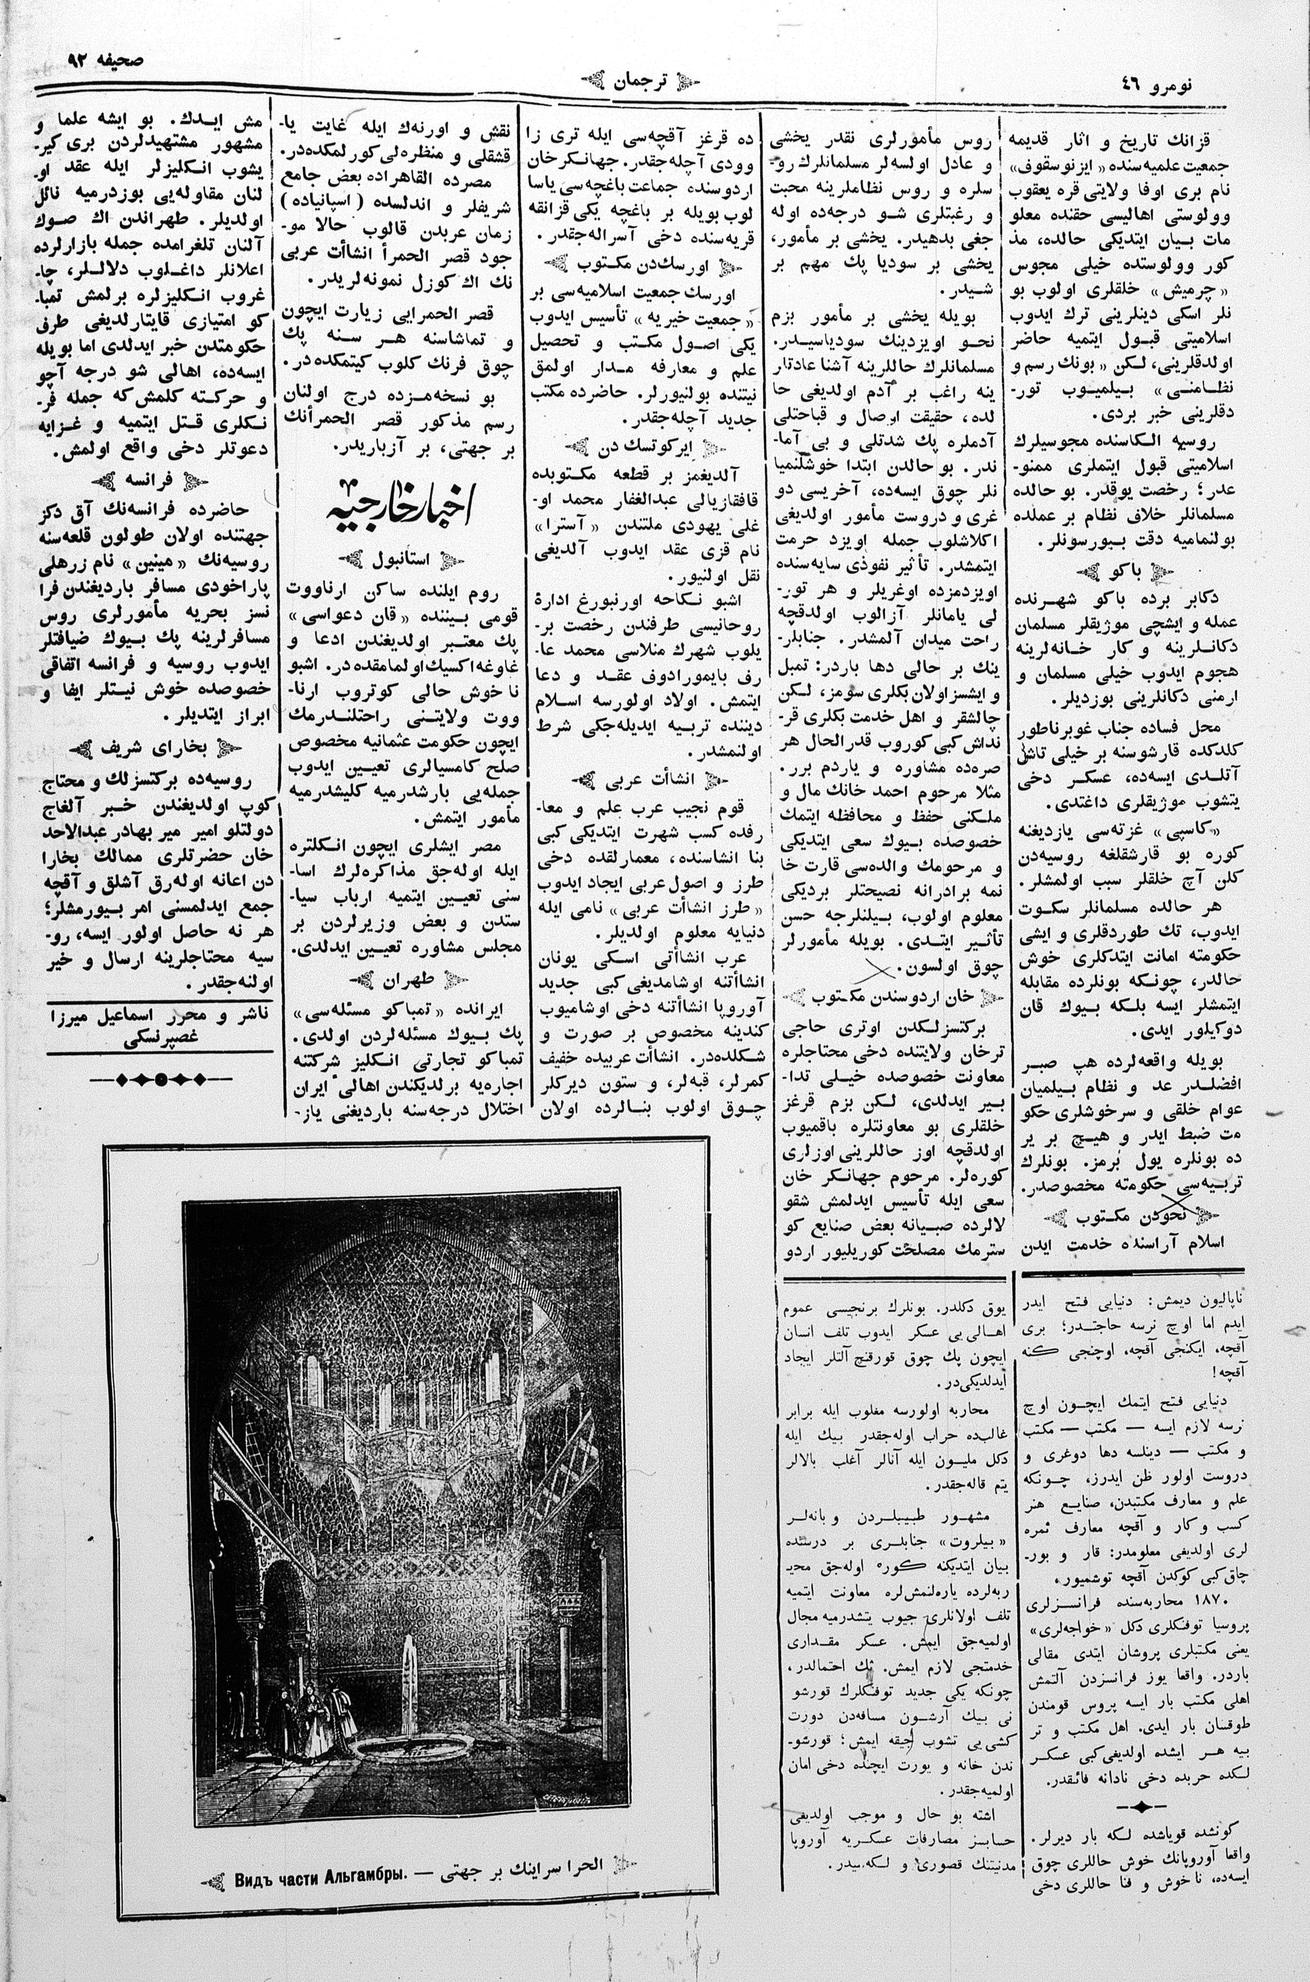 نومرو ٤٦
ترجمان
صحیفه ٩٢
قزانك تاریخ و اثار قدیمه
جمعیت علمیه‌سنده «ایزنوسقوف»
نام بری اوفا ولایتی قره یعقوب
وولوستی اهالیسی حقنده معلو
مات بیان ایتدیكی حالده، مذ
كور وولوستده خیلی مجوس
«چرمیش» خلقلری اولوب بو
نلر اسكی دینلرینی ترك ایدوب
اسلامیتی قبول ایتمیه حاضر
اولدقلرینی، لكن «بونك رسم و
نظامنی» بیلمیوب تور-
دقلرینی خبر بردی.
روسیه الكاسنده مجوسیلرك
اسلامیتی قبول ایتملری ممنو-
عدر؛ رخصت یوقدر. بو حالده
مسلمانلر خلاف نظام بر عملده
بولنمامیه دقت بیورسونلر.
باكو
دكابر برده باكو شهرنده
عمله و ایشچی موژیقلر مسلمان
دكانلرینه و كار خانه‌لرینه
هجوم ایدوب خیلی مسلمان و
ارمنی دكانلرینی بوزدیلر.
محل فساده جناب غوبرناطور
كلدكده قارشوسنه بر خیلی تاش
آتلدی ایسه‌ده، عسكر دخی
یتشوب موژیقلری داغتدی.
«كاسپی» غزته‌سی یازدیغنه
كوره بو قارشقلغه روسیه‌دن
كلن آچ خلقلر سبب اولمشلر.
هر حالده مسلمانلر سكوت
ایدوب، تك طوردقلری و ایشی
حكومته امانت ایتدكلری خوش
حالدر، چونكه بونلرده مقابله
ایتمشلر ایسه بلكه بیوك قان
دوكیلور ایدی.
بویله واقعه‌لرده هپ صبر
افضلدر عد و نظام بیلمیان
عوام خلقی و سرخوشلری حكو
مت ضبط ایدر و هیچ بر یر
ده بونلره یول برمز. بونلرك
تربیه‌سی حكومته مخصوصدر.
نحودن مكتوب
اسلام آراسنده خدمت ایدن
روس مأمورلری نقدر یخشی
و عادل اولسه‌لر مسلمانلرك رو-
سلره و روس نظاملرینه محبت
و رغبتلری شو درجه‌ده اوله
جغی بدهیدر. یخشی بر مأمور،
یخشی بر سودیا پك مهم بر
شیدر.
بویله یخشی بر مأمور بزم
نحو اویزدینك سودیاسیدر.
مسلمانلرك حاللرینه آشنا عادتلر
ینه راغب بر آدم اولدیغی حا
لده، حقیقت اوصال و قباحتلی
آدملره پك شدتلی و بی آما-
ندر. بو حالدن ابتدا خوشلنمیا
نلر چوق ایسه‌ده، آخریسی دو
غری و دروست مأمور اولدیغی
اكلاشلوب جمله اویزد حرمت
ایتمشدر. تأثیر نفوذی سایه‌سنده
اویزدمزده اوغریلر و هر تور-
لی یامانلر آزالوب اولدقچه
راحت میدان آلمشدر. جنابلر-
ینك بر حالی دها باردر: تمبل
و ایشسز اولان بكلری سومز، لكن
چالشقر و اهل خدمت بكلری قر-
نداش كبی كوروب قدر الحال هر
صره‌ده مشاوره و یاردم برر.
مثلا مرحوم احمد خانك مال و
ملكنی حفظ و محافظه ایتمك
خصوصده بیوك سعی ایتدیكی
و مرحومك والده‌سی قارت خا
نمه برادرانه نصیحتلر بردیكی
معلوم اولوب، بیلنلرجه حسن
تأثیر ایتدی. بویله مأمورلر
چوق اولسون.
خان اردوسندن مكتوب
بركتسزلكدن اوتری حاجی
ترخان ولایتنده دخی محتاجلره
معاونت خصوصده خیلی تدا-
بیر ایدلدی، لكن بزم قرغز
خلقلری بو معاونتلره باقمیوب
اولدقچه اوز حاللرینی اوزلری
كوره‌لر. مرحوم جهانكر خان
سعی ایله تأسیس ایدلمش شقو
لالرده صبیانه بعض صنایع كو
سترمك مصلحت كوریلیور اردو
ده قرغز آقچه‌سی ایله تری زا
وودی آچله‌جقدر. جهانكر خان
اردوسنده جماعت باغچه‌سی یاسا
لوب بویله بر باغچه یكی قزانقه
قریه‌سنده دخی آسراله‌جقدر.
اورسك‌دن مكتوب
اورسك جمعیت اسلامیه‌سی بر
«جمعیت خیریه» تأسیس ایدوب
یكی اصول مكتب و تحصیل
علم و معارفه مدار اولمق
نیتنده بولنیورلر. حاضرده مكتب
جدید آچله‌جقدر.
ایركوتسك دن
آلدیغمز بر قطعه مكتوبده
قافقازیالی عبدالغفار محمد او-
غلی یهودی ملتندن «آسترا»
نام قزی عقد ایدوب آلدیغی
نقل اولنیور.
اشبو نكاحه اورنبورغ ادارۀ
روحانیسی طرفندن رخصت بر-
یلوب شهرك منلاسی محمد عا-
رف بایمورادوف عقد و دعا
ایتمش. اولاد اولورسه اسلام
دیننده تربیه ایدیله‌جكی شرط
اولنمشدر.
انشاآت عربی
قوم نجیب عرب علم و معا-
رفده كسب شهرت ایتدیكی كبی
بنا انشاسنده، معمارلقده دخی
طرز و اصول عربی ایجاد ایدوب
«طرز انشاآت عربی» نامی ایله
دنیایه معلوم اولدیلر.
عرب انشاآتی اسكی یونان
انشاآتنه اوشامدیغی كبی جدید
آوروپا انشاآتنه دخی اوشامیوب
كندینه مخصوص بر صورت و
شكلده‌در. انشاآت عربیده خفیف
كمرلر، قبه‌لر، و ستون دیركلر
چوق اولوب بنالرده اولان
نقش و اورنه‌ك ایله غایت یا-
قشقلی و منظره‌لی كورلمكده‌در.
مصرده القاهراده بعض جامع
شریفلر و اندلسده (اسپانیاده)
زمان عربدن قالوب حالا مو-
جود قصر الحمرأ انشاآت عربی
نك اك كوزل نمونه‌لریدر.
قصر الحمرایی زیارت ایچون
و تماشاسنه هر سنه پك
چوق فرنك كلوب كیتمكده‌در.
بو نسخه‌مزده درج اولنان
رسم مذكور قصر الحمرأنك
بر جهتی، بر آزباریدر.
اخبار خارجیه
استانبول
روم ایلنده ساكن ارناووت
قومی بیننده «قان دعواسی»
پك معتبر اولدیغندن ادعا و
غاوغه اكسیك اولمامقده‌در. اشبو
ناخوش حالی كوتروب ارنا-
ووت ولایتنی راحتلندرمك
ایچون حكومت عثمانیه مخصوص
صلح كامسیالری تعیین ایدوب
جمله‌یی بارشدرمیه كلیشدرمیه
مأمور ایتمش.
مصر ایشلری ایچون انكلتره
ایله اوله‌جق مذاكره‌لرك اسا-
سنی تعیین ایتمیه ارباب سیا-
ستدن و بعض وزیرلردن بر
مجلس مشاوره تعیین ایدلدی.
طهران
ایرانده «تمباكو مسئله‌سی»
پك بیوك مسئله‌لردن اولدی.
تمباكو تجارتی انكلیز شركتنه
اجاره‌یه برلدیكندن اهالی ایران
اختلال درجه‌سنه باردیغنی یاز-
مش ایدك. بو ایشه علما و
مشهور مشتهیدلردن بری كیر-
یشوب انكلیزلر ایله عقد او
لنان مقاوله‌یی بوزدرمیه نائل
اولدیلر. طهراندن اك صوك
آلنان تلغرامده جمله بازارلرده
اعلانلر داغلوب دلاللر، چا-
غروب انكلیزلره برلمش تمبا-
كو امتیازی قایتارلدیغی طرف
حكومتدن خبر ایدلدی اما بویله
ایسه‌ده، اهالی شو درجه آچو
و حركته كلمش‌كه جمله فر-
نكلری قتل ایتمیه و غزایه
دعوتلر دخی واقع اولمش.
فرانسه
حاضرده فرانسه‌نك آق دكز
جهتنده اولان طولون قلعه‌سنه
روسیه‌نك «مینین» نام زرهلی
پاراخودی مسافر باردیغندن فرا
نسز بحریه مأمورلری روس
مسافرلرینه پك بیوك ضیافتلر
ایدوب روسیه و فرانسه اتفاقی
خصوصده خوش نیتلر ایفا و
ابراز ایتدیلر.
بخارای شریف
روسیه‌ده بركتسزلك و محتاج
كوپ اولدیغندن خبر آلغاج
دولتلو امیر میر بهادر عبدالاحد
خان حضرتلری ممالك بخارا
دن اعانه اوله‌رق آشلق و آقچه
جمع ایدلمسنی امر بیورمشلر؛
هر نه حاصل اولور ایسه، رو-
سیه محتاجلرینه ارسال و خیر
اولنه‌جقدر.
ناشر و محرر اسماعیل میرزا
غصپرنسكی
ناپالیون دیمش: دنیایی فتح ایدر
ایدم اما اوچ نرسه حاجتدر؛ بری
آقچه، ایكنجی آقچه، اوچنجی كنه
آقچه!
دنیایی فتح ایتمك ایچون اوچ
نرسه لازم ایسه — مكتب — مكتب
و مكتب — دینلسه دها دوغری و
دروست اولور ظن ایدرز، چونكه
علم و معارف مكتبدن، صنایع هنر
كسب و كار و آقچه معارف ثمره
لری اولدیغی معلومدر: قار و بور-
چاق كبی كوكدن آقچه توشمیور.
١٨٧٠ محاربه‌سنده فرانسزلری
پروسیا توفنكلری دكل «خواجه‌لری»
یعنی مكتبلری پروشان ایتدی مقالی
باردر. واقعا یوز فرانسزدن آلتمش
اهلی مكتب بار ایسه پروس قومندن
طوقسان بار ایدی. اهل مكتب و تر
بیه هر ایشده اولدیغی كبی عسكر
لكده حربده دخی نادانه فائقدر.
كونشده قویاشده لكه بار دیرلر.
واقعا آوروپانك خوش حاللری چوق
ایسه‌ده، ناخوش و فنا حاللری دخی
یوق دكلدر. بونلرك برنجیسی عموم
اهالی‌یی عسكر ایدوب تلف انسان
ایچون پك چوق قورقنچ آلتلر ایجاد
ایدلدیكی‌در.
محاربه اولورسه مغلوب ایله برابر
غالب‌ده خراب اوله‌جقدر بیك ایله
دكل ملیون ایله آنالر آغلب بالالر
یتم قاله‌جقدر.
مشهور طبیبلردن ویانه‌لر
«بیلروت» جنابلری بر درسنده
بیان ایتدیكنه كوره اوله‌جق محا-
ربه‌لرده یاره‌لنمش‌لره معاونت ایتمیه
تلف اولانلری جیوب یتشدرمیه مجال
اولمیه‌جق ایمش. عسكر مقداری
خدمتجی لازم ایمش. پك احتمالدر،
چونكه یكی جدید توفنكلرك قورشو
نی بیك آرشون مسافه‌دن دورت
كشی‌یی تشوب چیقه ایمش؛ قورشو-
ندن خانه و یورت ایچنده دخی امان
اولمیه‌جقدر.
اشته بو حال و موجب اولدیغی
حسابسز مصارفات عسكریه آوروپا
مدنیتنك قصوری و لكه‌سیدر.
الحمرا سراینك بر جهتی — Видъ части Альгамбры.